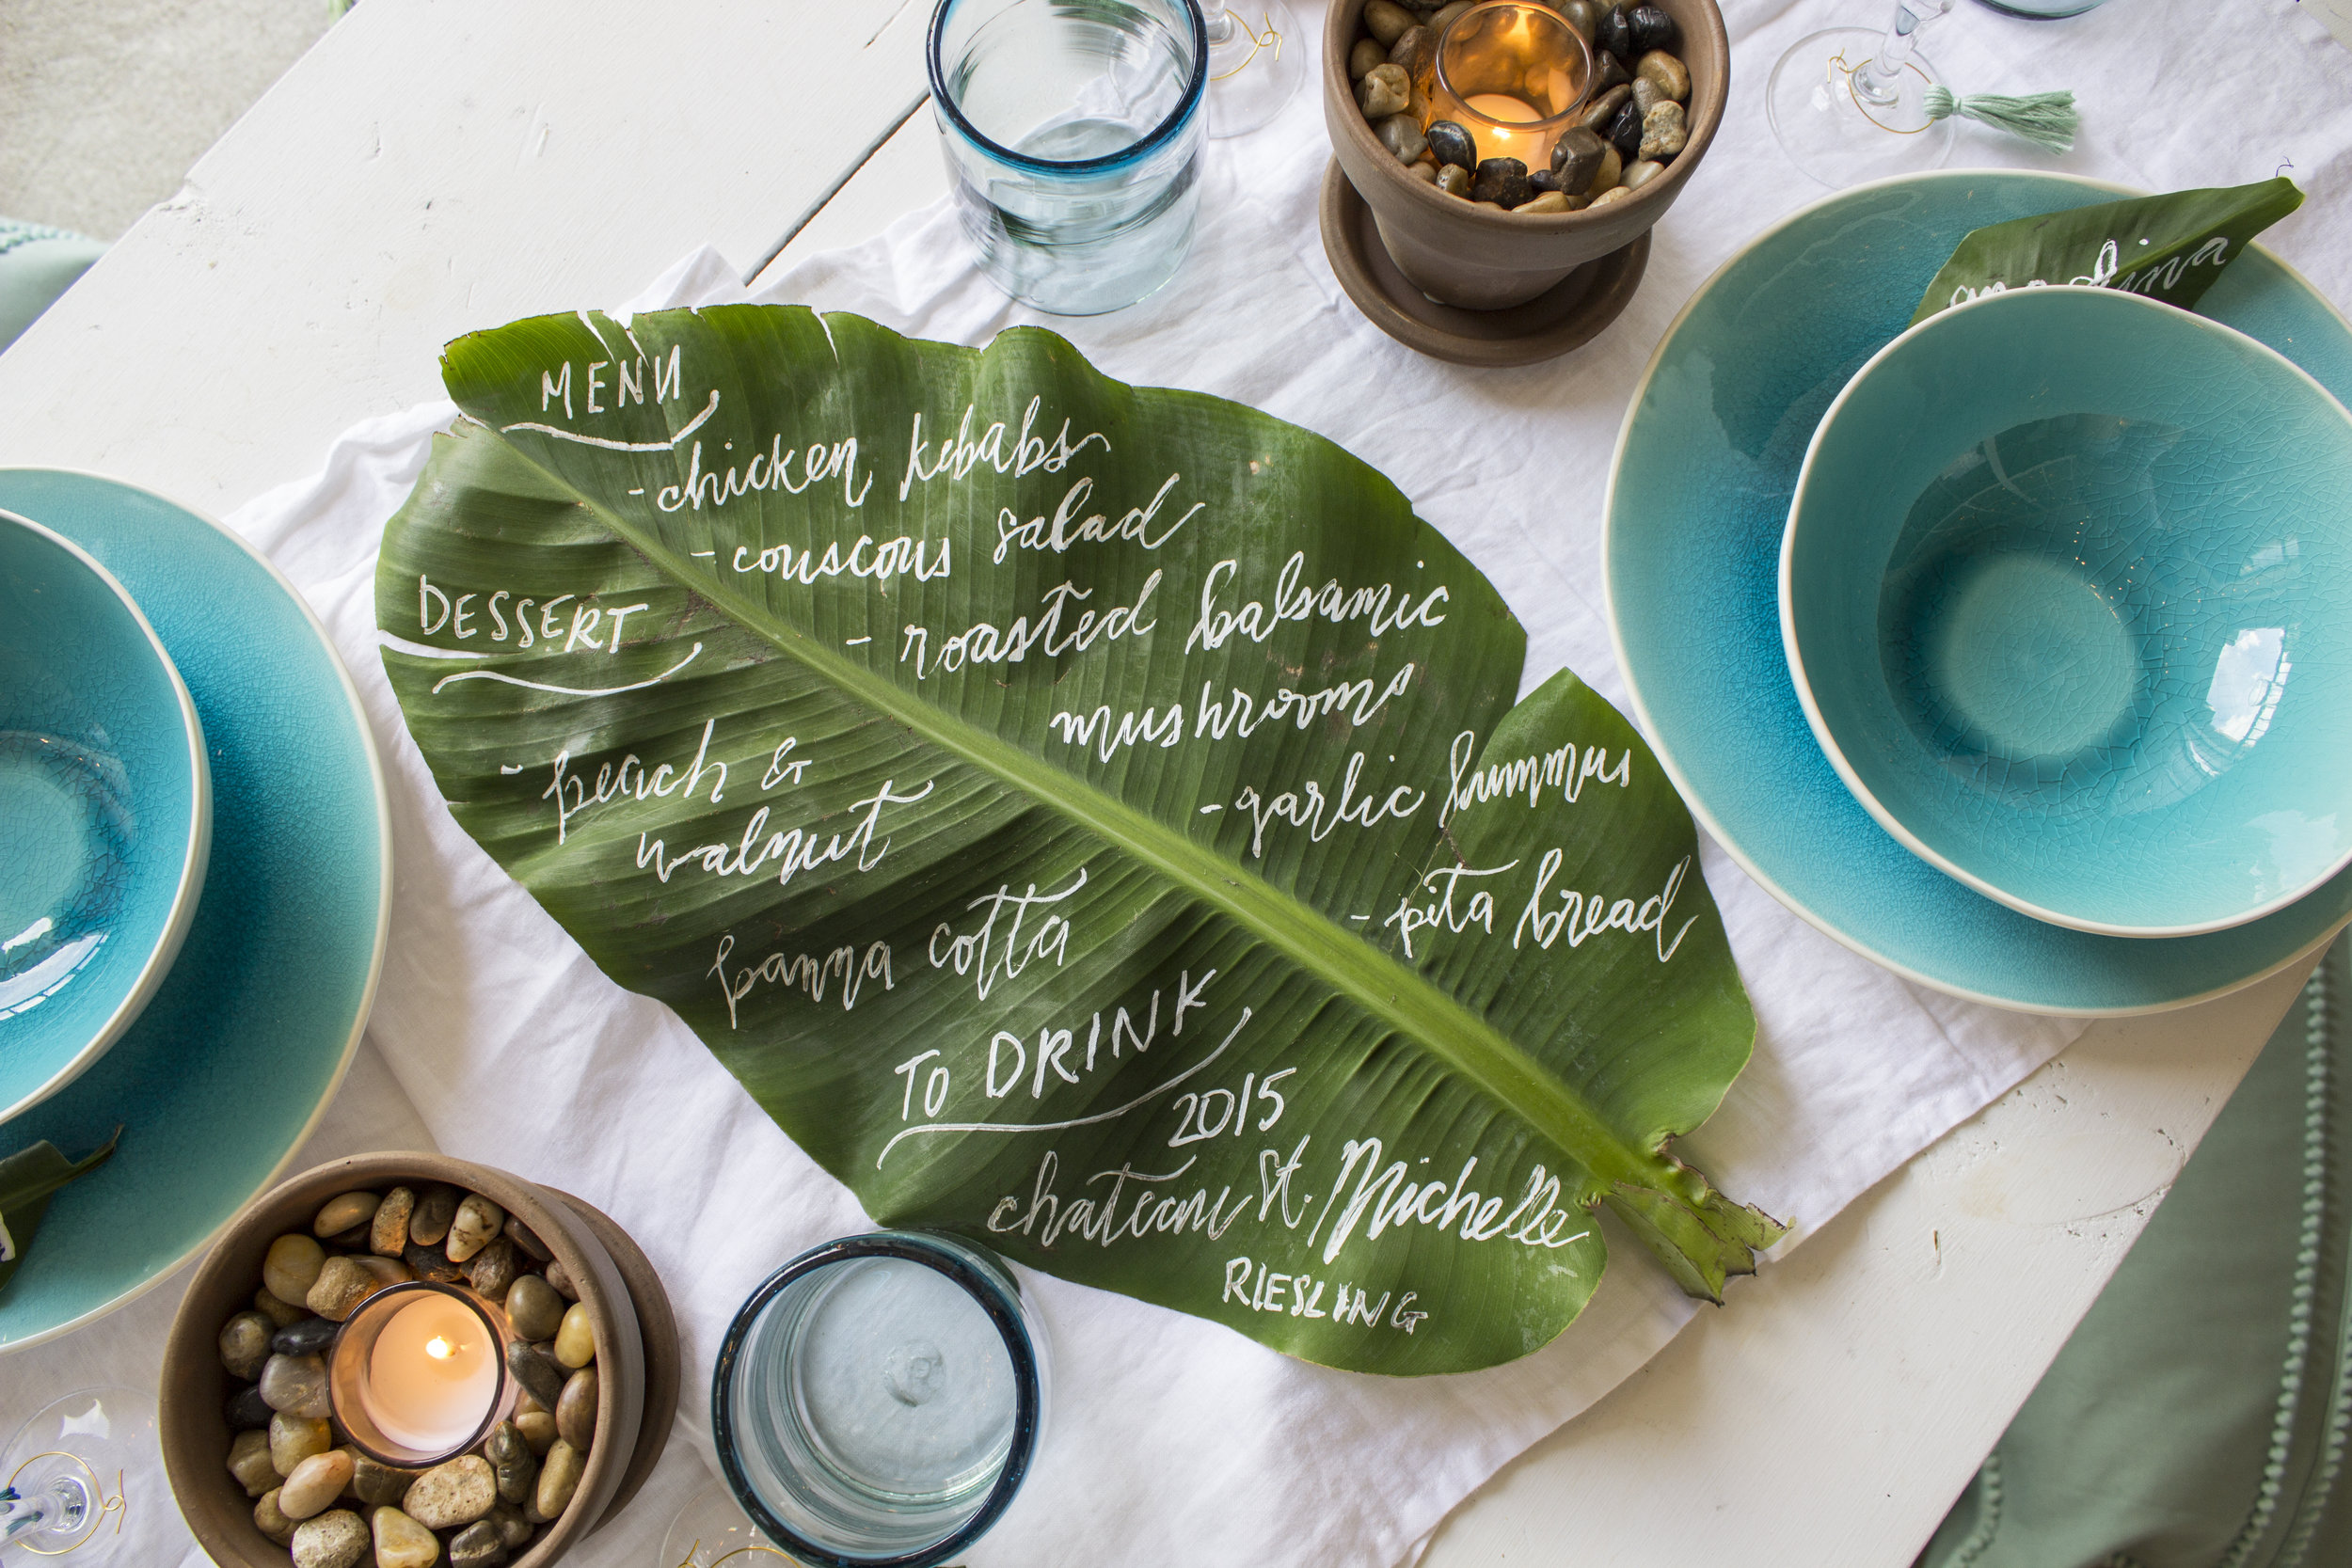 MENU
- chicken kebabs
- couscous salad
- roasted balsamic
mushrooms
- garlic hummus
- pita bread
DESSERT
- peach &
walnut
panna cotta
TO DRINK
2015
chateau St. Michelle
RIESLING